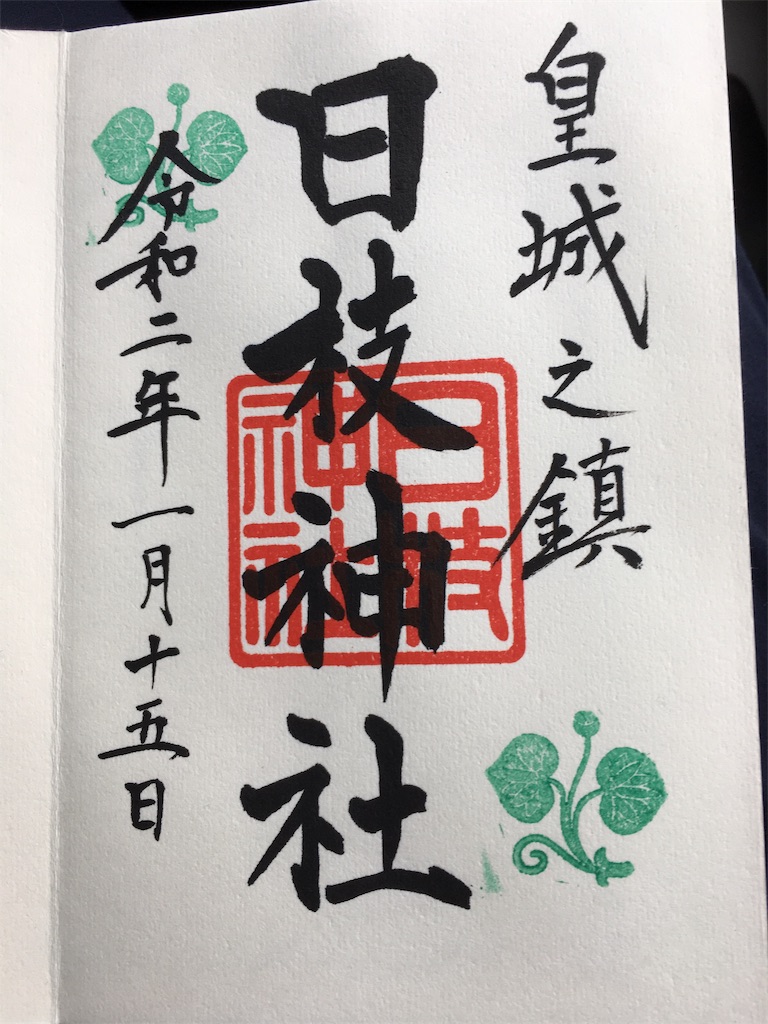 皇城之鎮
日枝神社
日枝神社
令和二年一月十五日